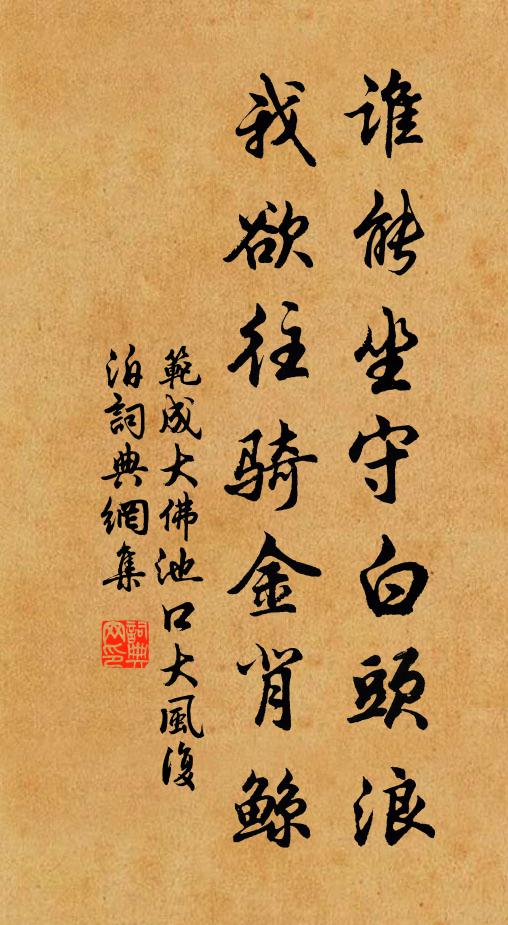 谁能坐守白頭浪
我欲往骑金背鲸
範成大佛池口大風復
泊詞典網集
詞典网印